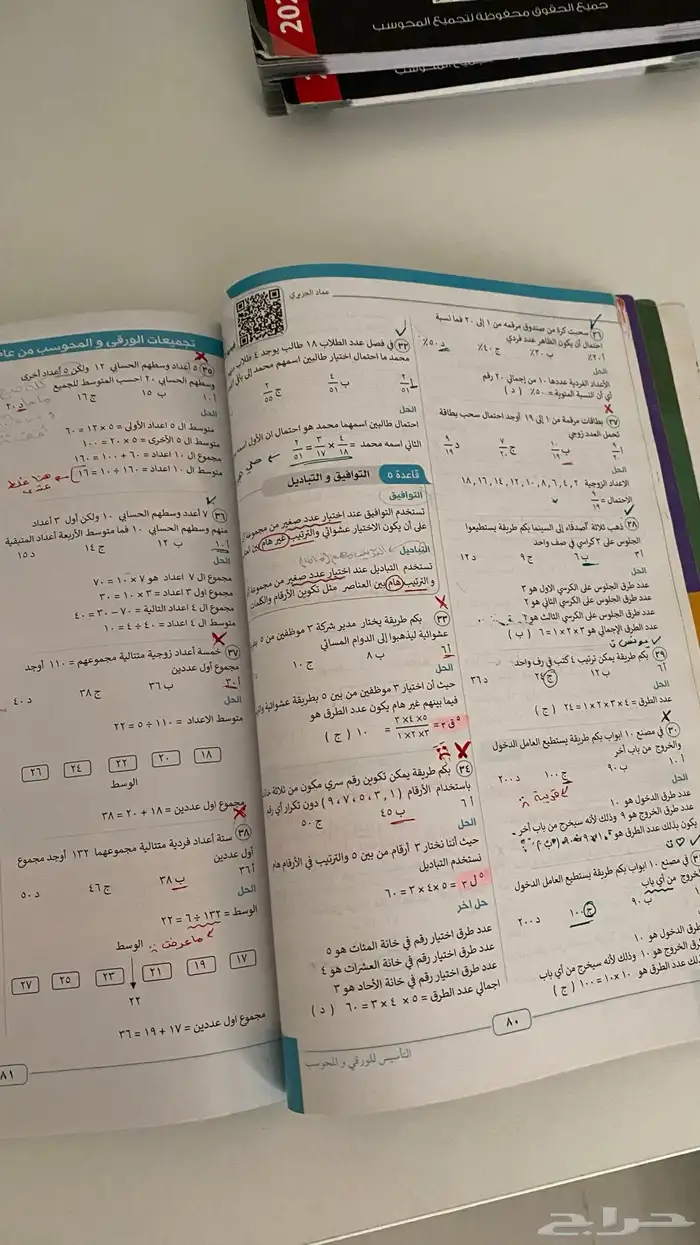 جميع الحقوق محفوظة لتجميع المحوسب
عماد الجزيري
٢٦ سحبت كرة من صندوق مرقمه من ١ إلى ٢٠ فما نسبة
احتمال أن يكون الظاهر عدد فردي
أ ٢٠٪ ب ٣٠٪ ج ٤٠٪ د ٥٠٪
الحل
الأعداد الفردية عددها ١٠ من إجمالي ٢٠ رقم
أي أن النسبة المئوية = ٥٠٪ ( د )
٢٧ بطاقات مرقمة من ١ إلى ١٩ أوجد احتمال سحب بطاقة
تحمل العدد زوجي
الحل
الاعداد الزوجية ٢، ٤، ٦، ٨، ١٠، ١٢، ١٤، ١٦، ١٨
الاحتمال = ٩/١٩
٢٨ ذهب ثلاثة أصدقاء إلى السينما بكم طريقة يستطيعوا
الجلوس على ٣ كراسي في صف واحد
أ ٣ ب ٦ ج ٩ د ١٢
الحل
عدد طرق الجلوس على الكرسي الاول هو ٣
عدد طرق الجلوس على الكرسي الثاني هو ٢
عدد طرق الجلوس على الكرسي الثالث هو
عدد الطرق الإجمالي هو ٣×٢×١=٦ ( ب )
٢٩ بكم طريقة يمكن ترتيب ٤ كتب في رف واحد
أ ٦ ب ١٢ ج ٢٤ د ٣٦
الحل
عدد الطرق = ٤×٣×٢×١ = ٢٤ ( ج )
٣٠ في مصنع ١٠ ابواب بكم طريقة يستطيع العامل الدخول
والخروج من باب أخر
أ ١٠ ب ٩٠ ج ١٠٠ د ٢٠٠
الحل
عدد طرق الدخول هو ١٠
عدد طرق الخروج هو ٩ وذلك لأنه سيخرج من باب أخر
يكون بذلك عدد الطرق هو
في مصنع ١٠ ابواب بكم طريقة يستطيع العامل الدخول
الخروج من أي باب
ب ٩٠ ج ١٠٠ د ٢٠٠
طرق الدخول هو ١٠
الخروج هو ١٠ وذلك لأنه سيخرج من أي باب
عدد الطرق هو ١٠×١٠=١٠٠ ( ج )
٣٢ في فصل عدد الطلاب ١٨ طالب يوجد ٤ طلاب
محمد ما احتمال اختيار طالبين اسمهم محمد
ب ٤/٥١ ج ٢/٥٥
الحل
احتمال طالبين اسمهما محمد هو احتمال ان الأول اسمه
الثاني اسمه محمد = ٤/١٨ × ٣/١٧ = ٢/٥١
قاعدة ٥ التوافيق و التباديل
التوافيق
تستخدم التوافيق عند اختيار عدد صغير من مجموعة
على أن يكون الاختيار عشوائي والترتيب غير هام
التباديل
تستخدم التباديل عند اختيار عدد صغير من مجموعة
و الترتيب هام بين العناصر مثل تكوين الأرقام والكلمات
٣٣ بكم طريقة يختار مدير شركة ٣ موظفين من ٥
عشوائية ليذهبوا إلى الدوام المسائي
أ ٦ ب ٨ ج ١٠
الحل
حيث أن اختيار ٣ موظفين من بين ٥ بطريقة عشوائية
فيما بينهم غير هام يكون عدد الطرق هو
٥ق٣ = ٥×٤×٣ / ٣×٢×١ = ١٠ ( ج )
٣٤ بكم طريقة يمكن تكوين رقم سري مكون من ثلاثة
باستخدام الأرقام (١،٣،٥،٧،٩) دون تكرار أي رقم
أ ٦ ب ٤٥ ج ٥٠
الحل
حيث أننا نختار ٣ أرقام من بين ٥ والترتيب في الأرقام هام
نستخدم التباديل
٥ل٣ = ٥×٤×٣ = ٦٠
حل اخر
عدد طرق اختيار رقم في خانة المئات هو ٥
عدد طرق اختيار رقم في خانة العشرات هو ٤
عدد طرق اختيار رقم في خانة الأحاد هو ٣
إجمالي عدد الطرق = ٥ × ٤ × ٣ = ٦٠ ( د )
٨٠
التأسيس للورقي و المحوسب
تجميعات الورقي و المحوسب من عام
٣٥ ٥ أعداد وسطهم الحسابي ١٢ ولكن ٥ أعداد أخرى
وسطهم الحسابي ٢٠ احسب المتوسط للجميع
أ ١٠ ب ١٥ ج ١٦ د ٢٠
الحل
متوسط ال ٥ اعداد الأولى = ٥×١٢ = ٦٠
متوسط ال ٥ الأخرى = ٥×٢٠ = ١٠٠
مجموع ال ١٠ اعداد = ٦٠+١٠٠ = ١٦٠
متوسط ال ١٠ اعداد = ١٦٠÷١٠ = ١٦
٣٦ ٧ أعدد وسطهم الحسابي ١٠ ولكن أول ٣ أعداد
منهم وسطهم الحسابي ١٠ فما متوسط الأربعة أعداد المتبقية
أ ١٠ ب ١٢ ج ١٤ د ١٥
الحل
مجموع ال ٧ اعداد هو ٧×١٠ = ٧٠
مجموع اول ٣ اعداد = ٣×١٠ = ٣٠
مجموع ال ٤ اعداد التالية = ٧٠-٣٠ = ٤٠
متوسط ال ٤ اعداد = ٤٠÷٤ = ١٠
٣٧ خمسة أعداد زوجية متتالية مجموعهم = ١١٠ أوجد
مجموع أول عددين
أ ٣٠ ب ٣٦ ج ٣٨ د ٤٠
الحل
متوسط الاعداد = ١١٠÷٥ = ٢٢
١٨ ٢٠ ٢٢ ٢٤ ٢٦
الوسط
مجموع اول عددين = ١٨ + ٢٠ = ٣٨
٣٨ ستة أعداد فردية متتالية مجموعهما ١٣٢ أوجد مجموع
أول عددين
أ ٣٦ ب ٣٨ ج ٤٦ د ٥٠
الحل
الوسط = ١٣٢÷٦ = ٢٢
ماعرفت
الوسط
١٧ ١٩ ٢١ ٢٣ ٢٥ ٢٧
٢٢
مجموع اول عددين = ١٧ + ١٩ = ٣٦
٨١
حراج